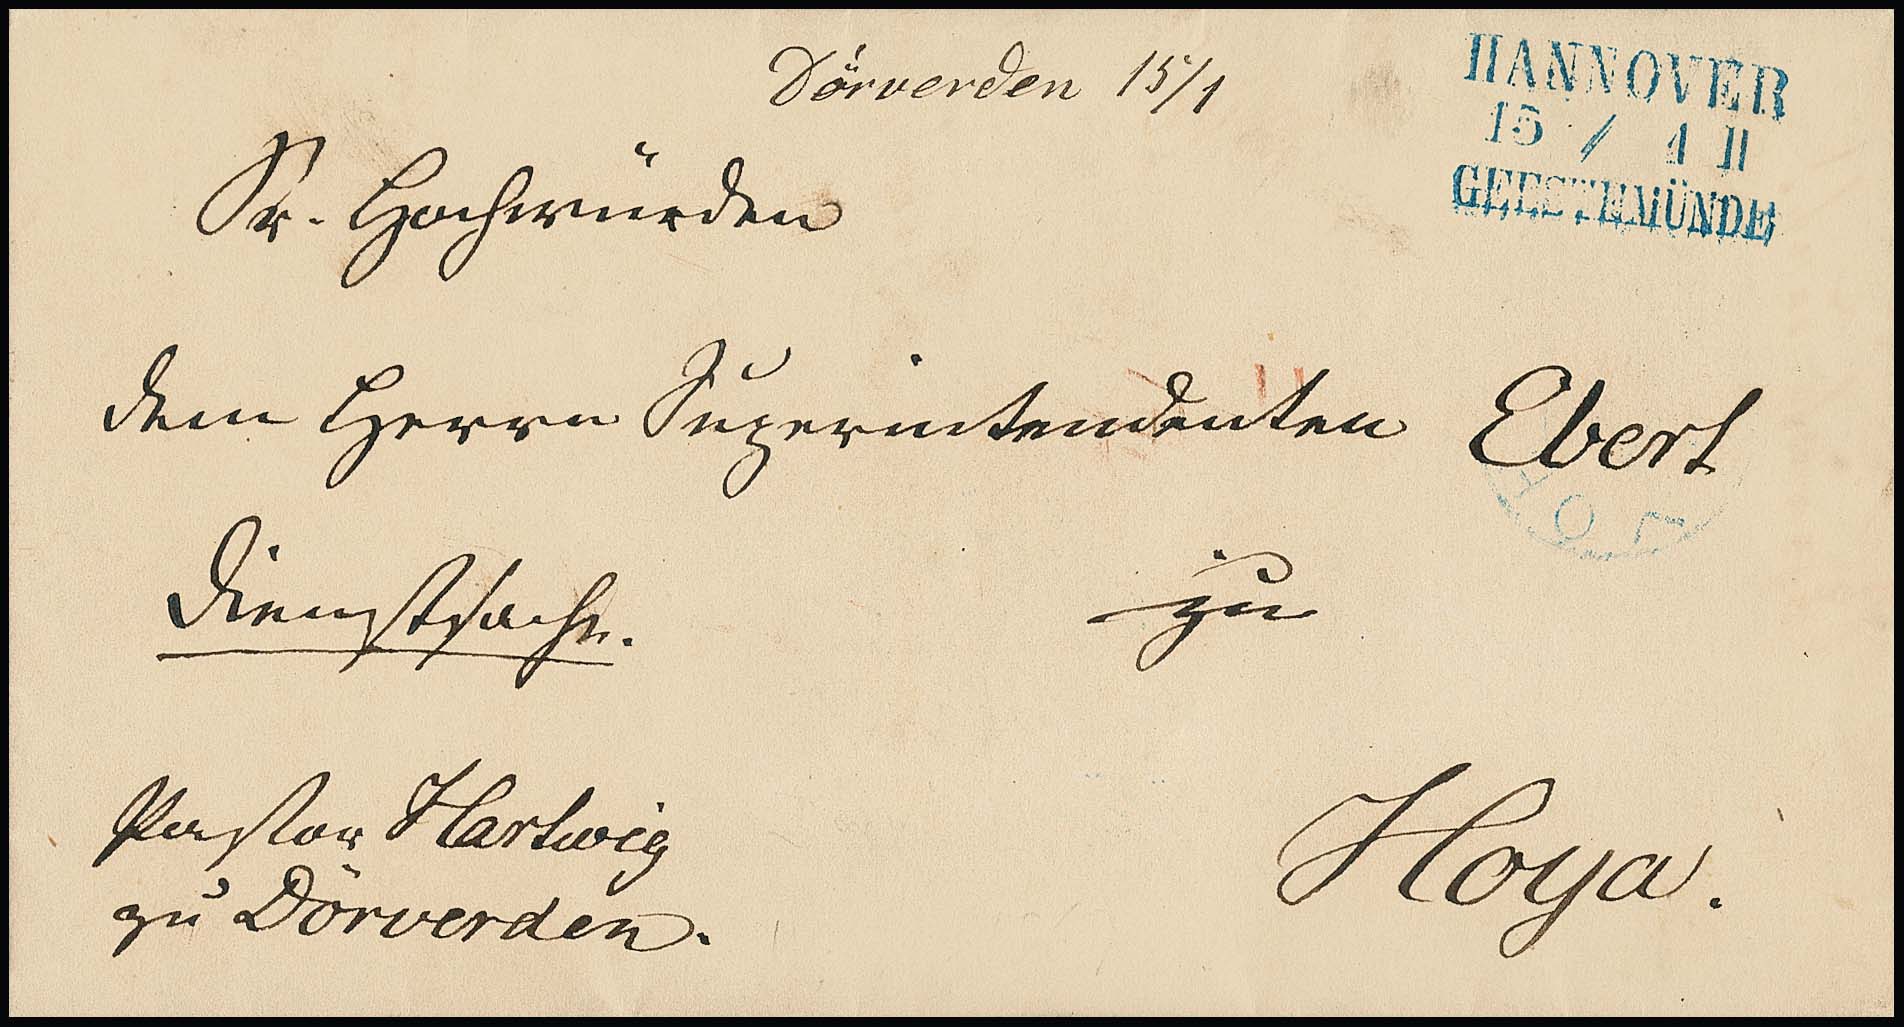 Dörverden 15/1
HANNOVER
15 / 1 II
GEESTEMÜNDE
Sr. Hochwürden
dem Herrn Superintendenten Ebert
Dienstsache.
zu
Pastor Hartwig
zu Dörverden.
Hoya.